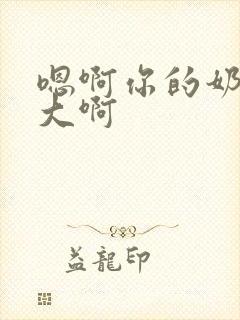 嗯啊你的奶
大啊
益龍印